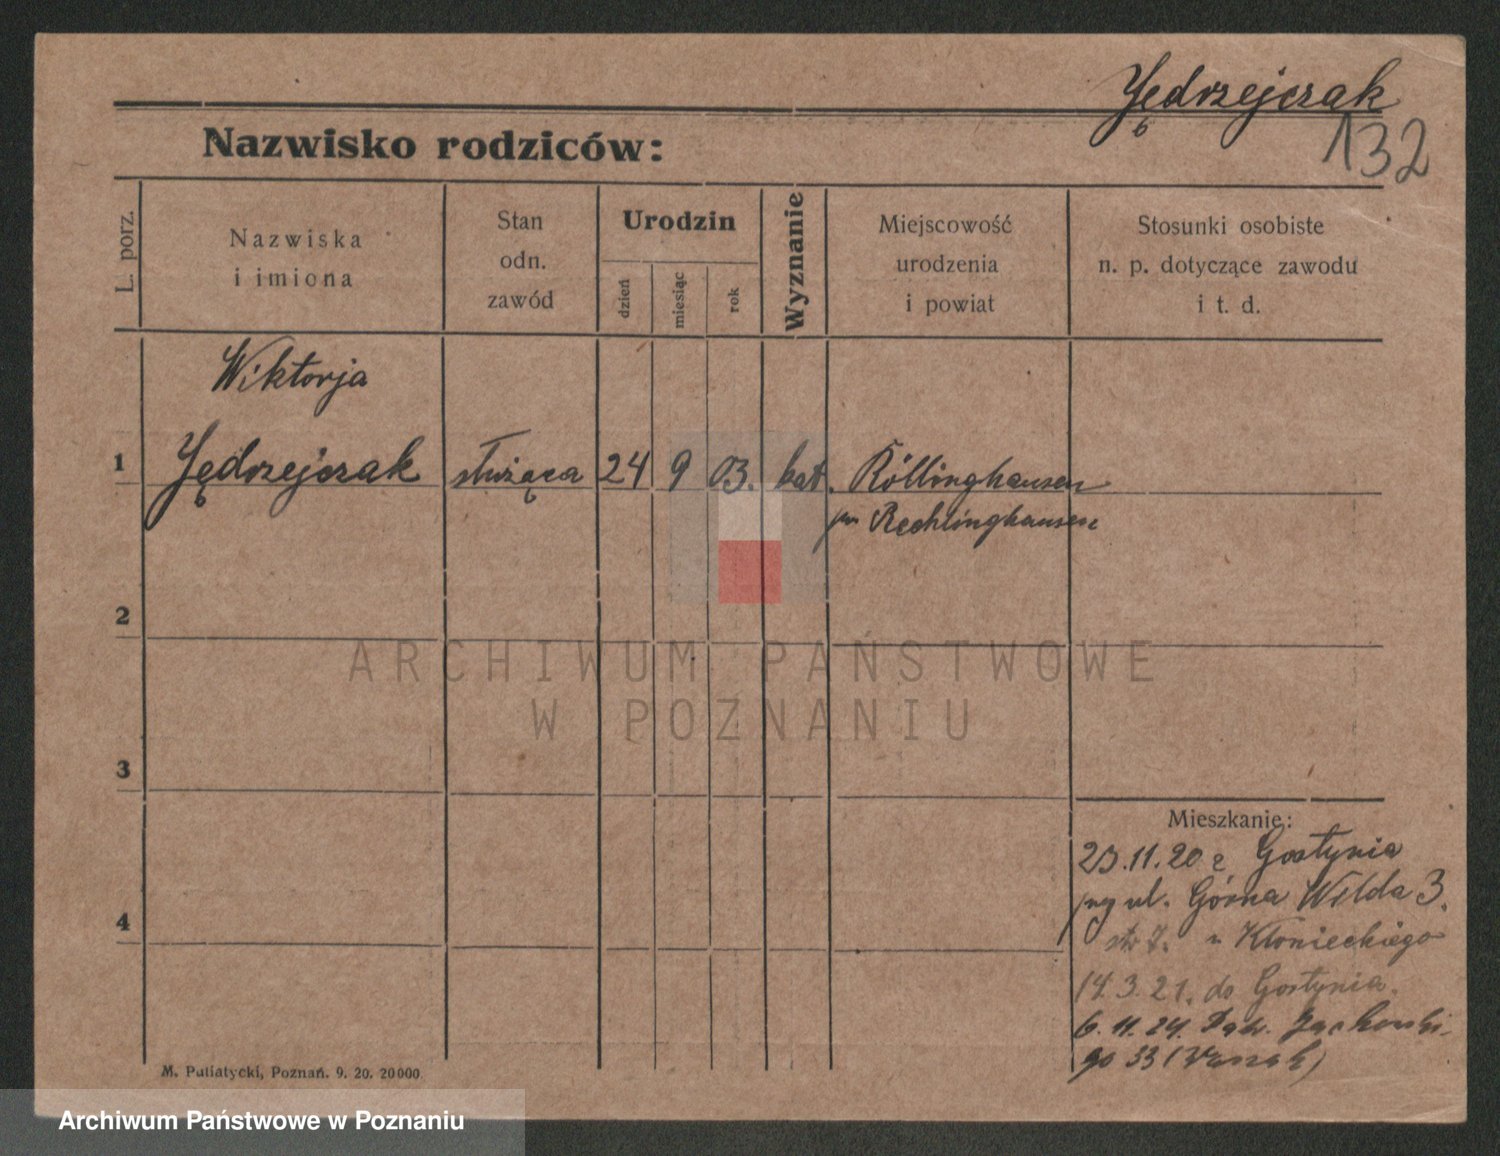 Jędrzejczak
132
Nazwisko rodziców:
L. porz.
Nazwiska
i imiona
Stan
odn.
zawód
Urodzin
dzień
miesiąc
rok
Wyznanie
Miejscowość
urodzenia
i powiat
Stosunki osobiste
n. p. dotyczące zawodu
i t. d.
Wiktorja
1 Jędrzejczak służąca 24 9 03. kat. Röllinghausen
pow Recklinghausen
2
ARCHIWUM PAŃSTWOWE
W POZNANIU
3
Mieszkanie:
23.11.20 z Gostynia
przy ul. Górna Wilda 3.
str 7. u Kłonieckiego
14.3.21. do Gostynia.
4
6.11.24. Dąb.
go 33
M. Putiatycki, Poznań. 9. 20. 20000
Archiwum Państwowe w Poznaniu